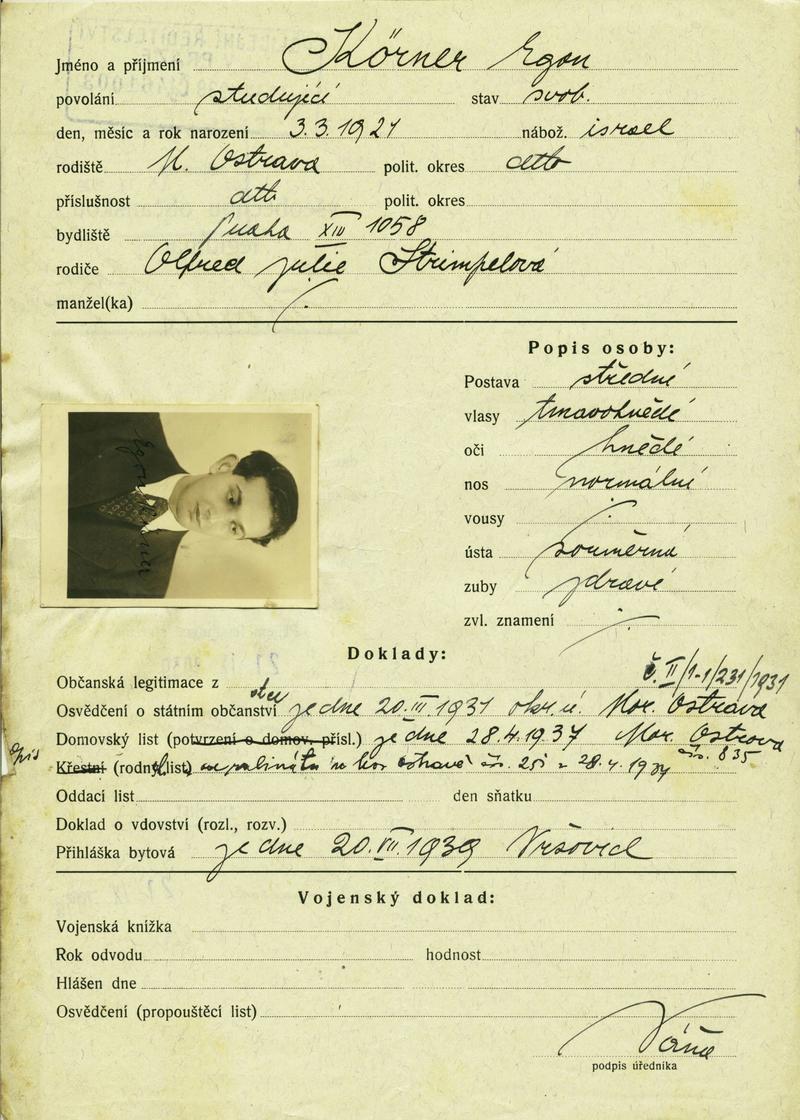 Jméno a příjmení Körner Egon
povolání studující stav svob.
den, měsíc a rok narození 3.3.1921 nábož. israel
rodiště M. Ostrava polit. okres detto
příslušnost detto polit. okres
bydliště Praha XIII 1058
rodiče Alfred Julie Strimpelová
manžel(ka) /.
Popis osoby:
Postava střední
vlasy tmavohnědé
oči hnědé
nos normální
vousy /.
ústa souměrná
zuby zdravé
zvl. znamení /.
Egon Körner
Doklady:
Občanská legitimace z
č. II/1-1/231/1931
Osvědčení o státním občanství otce je dne 20.III.1931 okr. ú. Mor. Ostrava
Domovský list (potvrzení o domov. přísl.) je dne 28.4.1937 Mor. Ostrava
čís. 835
Křestní (rodný list)
Oddací list den sňatku
Doklad o vdovství (rozl., rozv.)
Přihláška bytová je dne 20.VII.1939 Vršovice
Vojenský doklad:
Vojenská knížka
Rok odvodu hodnost
Hlášen dne
Osvědčení (propouštěcí list)
Váňa
podpis úředníka